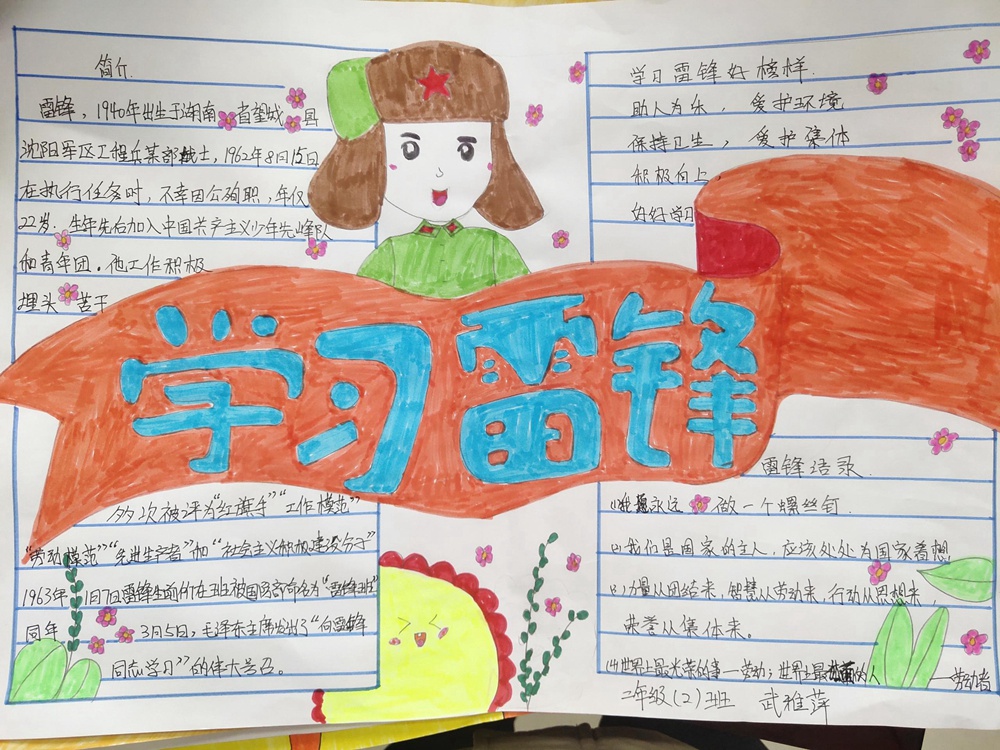 简介
雷锋，1940年出生于湖南省望城县
沈阳军区工程兵某部战士，1962年8月15日
在执行任务时，不幸因公殉职，年仅
22岁．生年先后加入中国共产主义少年先峰队
和青年团．他工作积极
埋头苦干
学习雷锋好榜样．
助人为乐，爱护环境
保持卫生，爱护集体
积极向上，
好好学习
学习雷锋
多次被评为“红旗手”“工作模范”
“劳动模范”“先进生产者”和“社会主义积极建设分子”
1963年1月7日雷锋生前所在班被国防部命名为“雷锋班”
同年3月5日，毛泽东主席发出了“向雷锋
同志学习”的伟大号召。
雷锋语录
(1)我愿永远做一个螺丝钉．
(2)我们是国家的主人，应该处处为国家着想
(3)力量从团结来，智慧从劳动来，行动从思想来，
荣誉从集体来。
(4)世界上最光荣的事—劳动；世界上最的人——劳动者
二年级(2)班 武雅萍